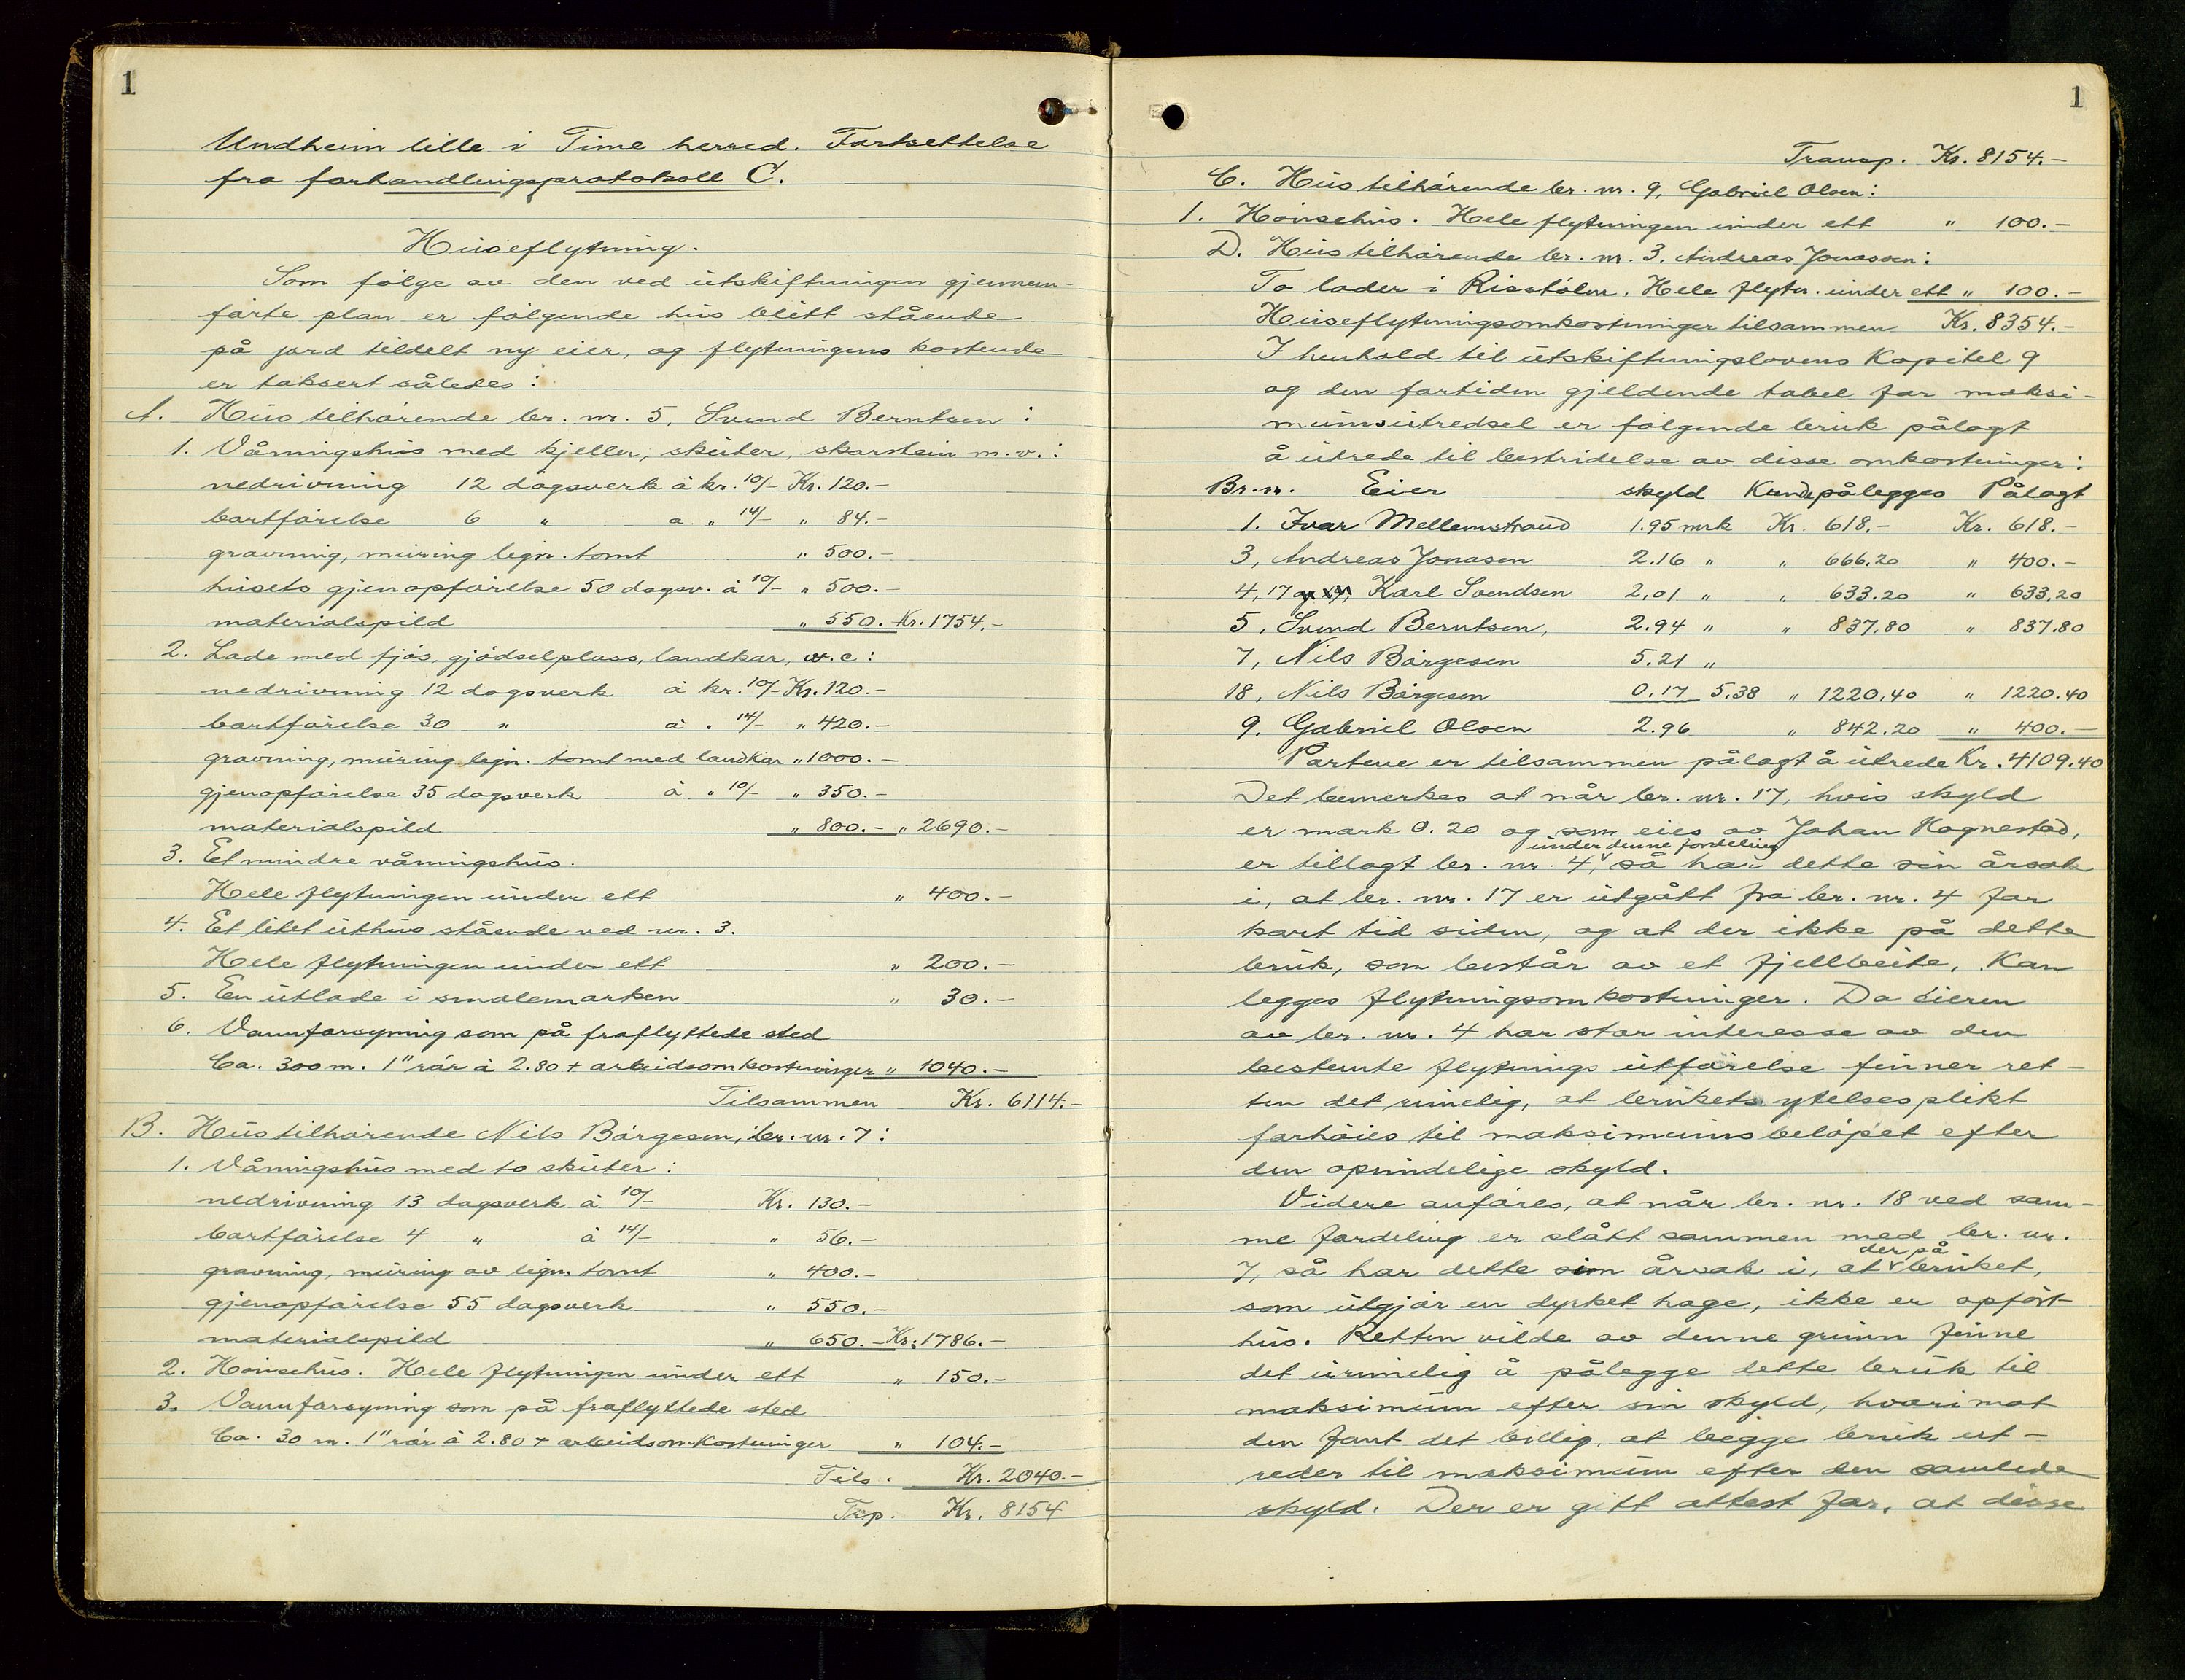 1
Undheim lille i Time herred. Fortsettelse
fra forhandlingsprotokoll C.
Huseflytning.
Som følge av den ved utskiftningen gjennem-
førte plan er følgende hus blitt stående
på jord tildelt ny eier, og flytningens kostende
er taksert således:
A. Hus tilhørende br. nr. 5, Svend Berntsen:
1. Våningshus med kjeller, skuter, skorstein m.v.:
nedrivning 12 dagsverk à kr. 10/- Kr. 120.-
bortførelse 6 " a " 14/- " 84.-
gravning, muring legn. tomt " 500.-
husets gjenopførelse 50 dagsv. à 10/- " 500.-
materialspild " 550.- Kr. 1754.-
2. Lade med fjøs, gjødselplass, landkar, w.c:
nedrivning 12 dagsverk à kr. 10/- Kr. 120.-
bortførelse 30 " à " 14/- " 420.-
gravning, muring legn. tomt med landkar " 1000.-
gjenopførelse 35 dagsverk à " 10/- " 350.-
materialspild " 800.- " 2690.-
3. Et mindre våningshus.
Hele flytningen under ett " 400.-
4. Et litet uthus stående ved nr. 3.
Hele flytningen under ett " 200.-
5. En utlade i smalemarken " 30.-
6. Vannforsyning som på fraflyttede sted
Ca. 300 m. 1" rør à 2.80 + arbeidsomkostninger " 1040.-
Tilsammen Kr. 6114.-
B. Hus tilhørende Nils Børgesen, br. nr. 7:
1. Våningshus med to skuter:
nedrivning 13 dagsverk à 10/- Kr. 130.-
bortførelse 4 " à 14/- " 56.-
gravning, muring av legn. tomt " 400.-
gjenopførelse 55 dagsverk " 550.-
materialspild " 650.- Kr. 1786.-
2. Hønsehus. Hele flytningen under ett " 150.-
3. Vannforsyning som på fraflyttede sted
Ca. 30 m. 1" rør à 2.80 + arbeidsomkostninger " 104.-
Tils. Kr. 2040.-
Trsp. Kr. 8154
1
Transp. Kr. 8154.-
C. Hus tilhørende br. nr. 9, Gabriel Olsen:
1. Hønsehus. Hele flytningen under ett " 100.-
D. Hus tilhørende br. nr. 3, Andreas Jonassen:
To lader i Risstølm. Hele flytn. under ett " 100.-
Huseflytningsomkostninger tilsammen Kr. 8354.-
I henhold til utskiftningslovens Kapitel 9
og den fortiden gjeldende tabel for maksi-
mumsutredsel er følgende bruk pålagt
å utrede til bestridelse av disse omkostninger:
Br.nr. Eier skyld Kunde pålegges Pålagt
1. Ivar Mellemstrand 1.95 mrk Kr. 618.- Kr. 618.-
3, Andreas Jonasen 2.16 " " 666.20 " 400.-
4, 17 Karl Svendsen 2,01 " " 633.20 " 633,20
5, Svend Berntsen, 2.94 " " 837.80 " 837.80
7, Nils Børgesen 5.21 "
18, Nils Børgesen 0.17 5,38 " 1220,40 " 1220.40
9. Gabriel Olsen 2.96 " 842.20 " 400.-
Partene er tilsammen pålagt å utrede Kr. 4109.40
Det bemerkes at når br. nr. 17, hvis skyld
er mark 0.20 og som eies av Johan Hognestad,
under denne fordeling
er tillagt br. nr. 4, så har dette sin årsak
i, at br. nr. 17 er utgått fra br. nr. 4 for
kort tid siden, og at der ikke på dette
bruk, som består av et fjellbeite, kan
legges flytningsomkostninger. Da eieren
av br. nr. 4 har stor interesse av den
bestemte flytnings utførelse finner ret-
ten det rimelig, at brukets ytelsesplikt
forhøies til maksimumsbeløpet efter
den oprindelige skyld.
Videre anføres, at når br. nr. 18 ved sam-
me fordeling er slått sammen med br. nr.
der på
7, så har dette sin årsak i, at bruket,
som utgjør en dyrket hage, ikke er opført
hus. Retten vilde av denne grunn finne
det urimelig å pålegge dette bruk til
maksimum efter sin skyld, hvorimot
den fant det billig, at begge bruk ut-
reder til maksimum efter den samlede
skyld. Der er gitt attest for, at disse